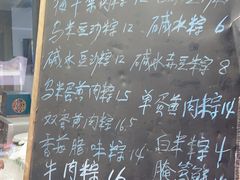 梅干菜肉粽 12
乌米豆沙粽 12 碱水粽 6
碱水豆沙粽 12 碱水赤豆粽 8
乌米蛋黄肉粽 15 单蛋黄肉粽 14
双蛋黄肉粽 16.5
香菇腊味粽 14 白米粽 4
牛肉粽 16